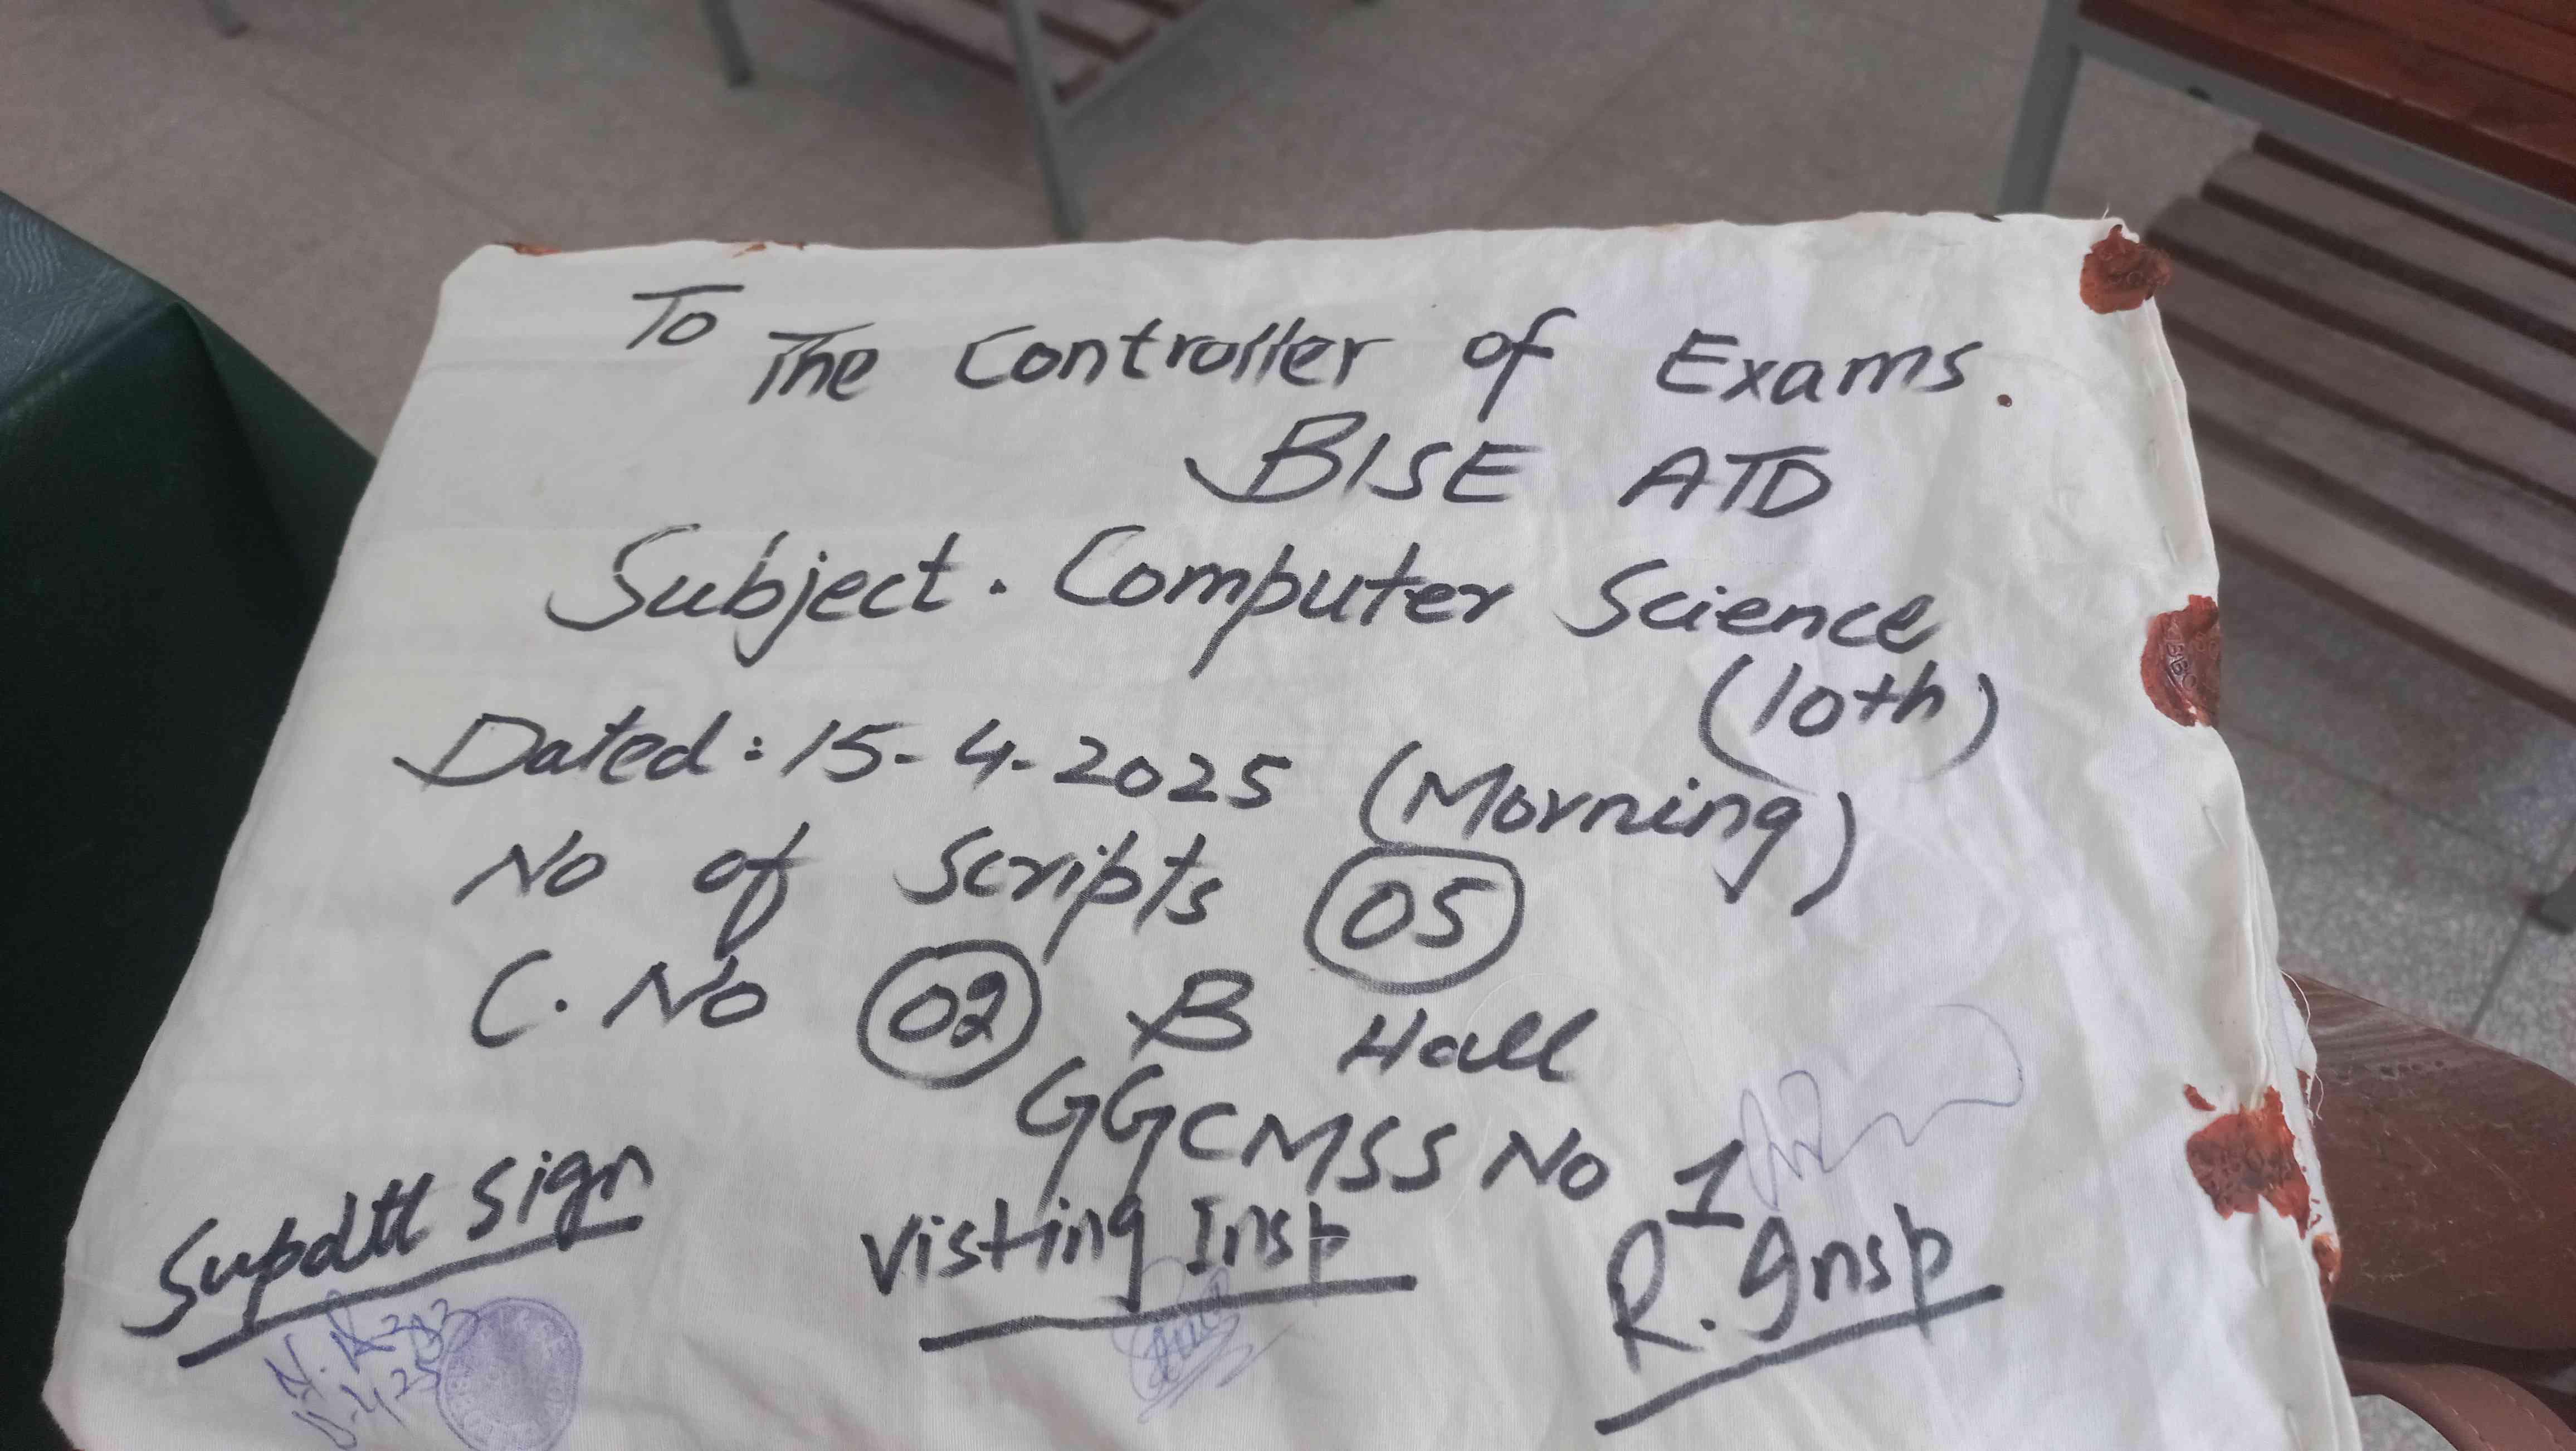 To
The Controller of Exams.
BISE ATD
Subject. Computer Science
(10th)
Dated: 15-4-2025 (Morning)
No of Scripts 05
C. No 02 B Hall
GGCMSS No 1
Supdtt Sign Visting Insp R. Insp